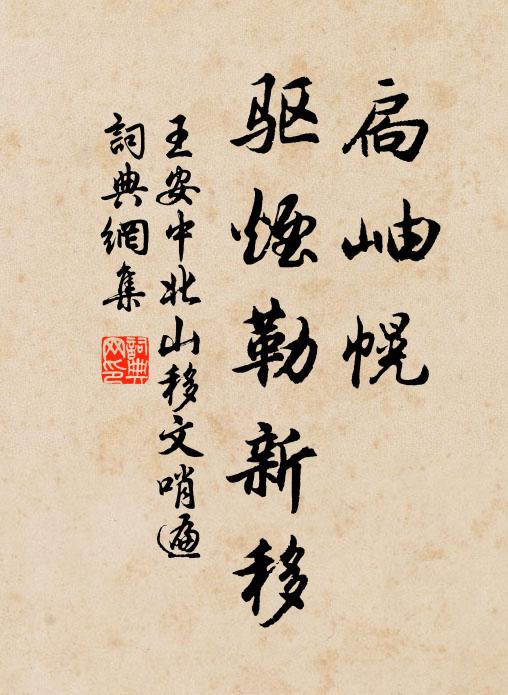 扃岫幌
驱煙勒新移
王安中北山移文哨遍
詞典網集
詞典
网印